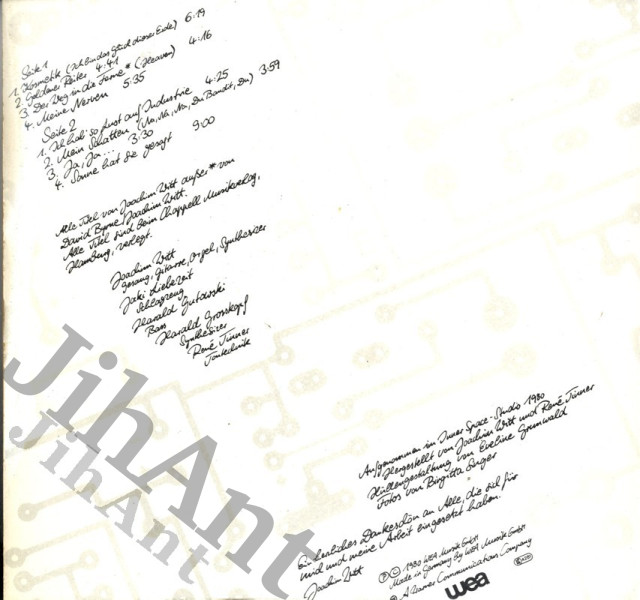 Seite 1
1. Kosmetik (Ich bin das Glück dieser Erde) 6:19
2. Goldener Reiter 4:41
3. Der Weg in die Ferne * (Heaven) 4:16
4. Meine Nerven 5:35
Seite 2
1. Ich hab' so Lust auf Industrie 4:25
2. Mein Schatten (Na, Na, Na, Du Bandit, Du) 3:59
3. Ja, Ja ... 3:30
4. Sonne hat sie gesagt 9:00
Alle Titel von Joachim Witt außer * von
David Byrne/Joachim Witt.
Alle Titel sind beim Chappell Musikverlag,
Hamburg, verlegt.
Joachim Witt
Gesang, Gitarre, Orgel, Synthesizer
Jaki Liebezeit
Schlagzeug
Harald Gutowski
Bass
Harald Grosskopf
Synthesizer
René Tinner
Tontechnik
Aufgenommen im Inner Space-Studio 1980
Hergestellt von Joachim Witt und René Tinner
Hüllengestaltung von Eveline Grunwald
Fotos von Birgitta
Ein herzliches Dankeschön an Alle, die sich für
mich und meine Arbeit eingesetzt haben.
Joachim Witt
℗ © 1980 WEA Musik GmbH
Made in Germany by WEA Musik GmbH
A Warner Communications Company
wea
JihAnt
JihAnt